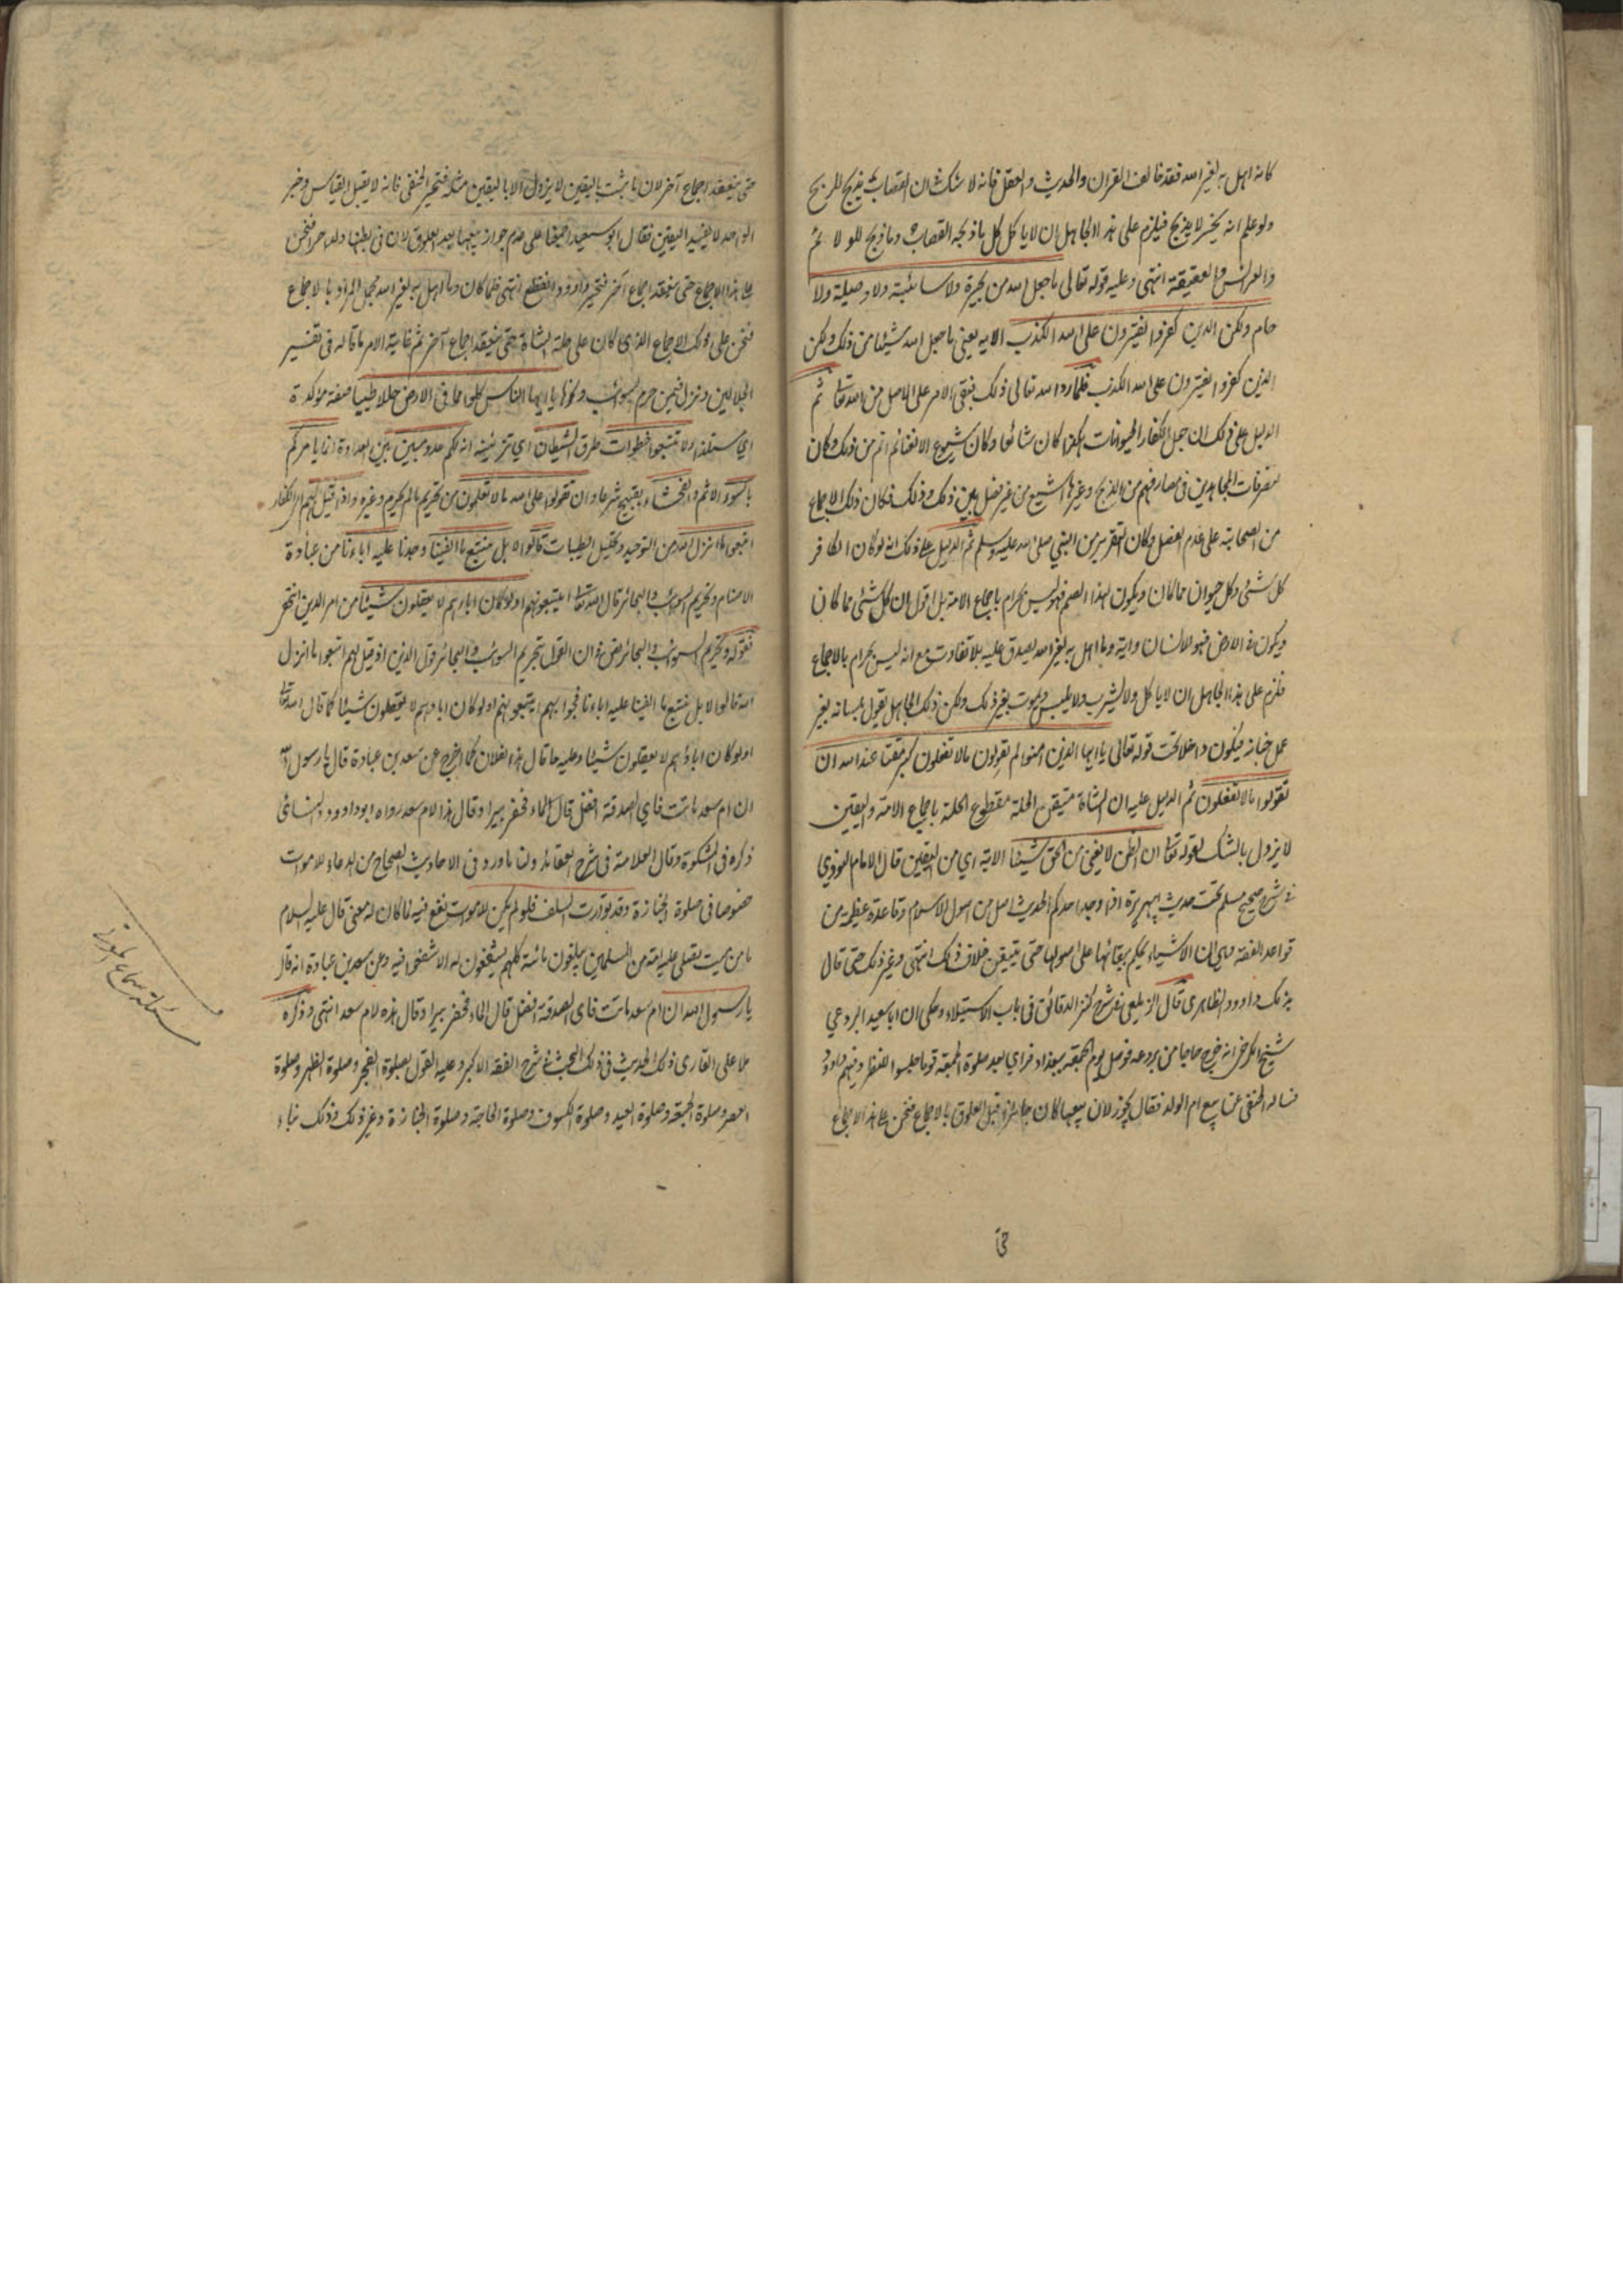 كانه اهل به لغير الله فقد خالف القران والحديث والعقل فانه لا شك ان القصاب يذبح للربح
ولو علم انه يخسر لا يذبح فيلزم على هذا الجاهل ان لا ياكل كل ما ذبحه القصاب وما ذبح للولائم
والعرائس والعقيقة انتهى وعليه قوله تعالى ما جعل الله من بحيرة ولا سائبة ولا وصيلة ولا
حام ولكن الذين كفروا يفترون على الله الكذب الايه يعني ما جعل الله شيئا من ذلك ولكن
الذين كفروا يفترون على الله الكذب فلما رد الله تعالى ذلك فبقي الامر على الاصل من الله تعالى ثم
الدليل على ذلك ان جعل الكفار الحيوانات هكذا كان شائعا وكان شيوع الاغنام اتم من ذلك وكان
تصرفات المجاهدين في مصارفهم من الذبح وغيرها اشيع من غير فصل بين ذلك وذلك فكان ذلك الاجماع
من الصحابة على عدم الفصل وكان التقرير من النبي صلى الله عليه وسلم ثم الدليل على ذلك انه لو كان الكافر
كل شئ وكل حيوان مما كان ويكون لهذا الصنم فهو ليس بحرام باجماع الامة بل اقول ان كل شئ مما كان
ويكون في الارض فهو للانسان وانه وما اهل به لغير الله يصدق عليه بلا تفاوت مع انه ليس بحرام بالاجماع
فلزم على هذا الجاهل ان لا ياكل ولا يشرب ولا يلبس ويموت بغير ذلك ولكن ذلك الجاهل يقول بلسانه بغير
عمل جنانه فيكون داخلا تحت قوله تعالى يا ايها الذين امنوا لم تقولون ما لا تفعلون كبر مقتا عند الله ان
تقولوا ما لا تفعلون ثم الدليل عليه ان الشاة متيقن الحلة مقطوع الحلة باجماع الامة واليقين
لا يزول بالشك لقوله تعالى ان الظن لا يغني من الحق شيئا الاية اي من اليقين قال الامام النووي
في شرح صحيح مسلم تحت حديث ابي هريرة اذا وجد احدكم الحديث اصل من اصول الاسلام وقاعدة عظيمة من
قواعد الفقه وهي ان الاشياء يحكم ببقائها على اصولها حتى يتيقن خلاف ذلك انتهى وغير ذلك حتى قال
بذلك داوود الظاهري قال الزيلعي في شرح كنز الدقائق في باب الاستيلاء وحكي ان ابا سعيد البردعي
شيخ الكرخي انه خرج حاجا من بردعه فوصل يوم الجمعة ببغداد فراي بعد صلوة الجمعة قوما جلسوا للنظر وفيهم داود
فساله الحنفي عن بيع ام الولد فقال يجوز لان بيعها كان جائزا قبل العلوق بالاجماع فنحن على هذا الاجماع
حتى
حتى ينعقد اجماع آخر لان ما ثبت باليقين لا يزول الا باليقين مثله فتحير الحنفي فانه لا يقبل القياس وخبر
الواحد لا يفيد اليقين فقال ابو سعيد اجمعنا على عدم جواز بيعها بعد العلوق لان في بطنها ولدا حرا فنحن
على هذا الاجماع حتى ينعقد اجماع آخر فتحير داوود وانقطع انتهى فلما كان وما اهل به لغير الله مجمل المراد بالاجماع
فنحن على ذلك الاجماع الذي كان على حلة الشاة حتى ينعقد اجماع آخر ثم غاية الامر ما قاله في تفسير
الجلالين ونزل فيمن حرم السوائب ونحوها يا ايها الناس كلوا مما في الارض حلالا طيبا صفة مؤكدة
اي مستلذا ولا تتبعوا خطوات طرق الشيطان اي تزيينه انه لكم عدو مبين بين العداوة انما يامركم
بالسوء الاثم والفحشاء بقبيح شرعا وان تقولوا على الله ما لا تعلمون من تحريم ما لم يحرم وغيره واذا قيل لهم اي الكفار
اتبعوا ما انزل الله من التوحيد وتحليل الطيبات قالوا لا بل نتبع ما الفينا وجدنا عليه اباءنا من عبادة
الاصنام وتحريم السوائب والبحائر قال الله تعالى ايتبعونهم اولو كان اباؤهم لا يعقلون شيئا من امر الدين انتهى
فقوله وتحريم السوائب والبحائر نص في ان القول بتحريم السوائب والبحائر قول الذين اذا قيل لهم اتبعوا ما انزل
الله قالوا لا بل نتبع ما الفينا عليه اباءنا فجوابهم ايتبعونهم اولو كان اباؤهم لا يعقلون شيئا كما قال الله تعالى
اولو كان اباؤهم لا يعقلون شيئا وعليه ما قال هذا لفلان كما اخرج عن سعد بن عبادة قال يا رسول الله
ان ام سعد ماتت فاي الصدقة افضل قال الماء فحفر بيرا وقال هذا لام سعد رواه ابو داوود والنسائي
ذكره في المشكوة وقال العلامة في شرح العقائد ولنا ما ورد في الاحاديث الصحاح من الدعاء للاموات
خصوصا في صلوة الجنازة وقد توارث السلف فلو لم يكن للاموات نفع فيه لما كان له معنى قال عليه السلام
ما من ميت يصلي عليه امة من المسلمين يبلغون مائة كلهم يشفعون له الا شفعوا فيه وعن سعد بن عبادة انه قال
يا رسول الله ان ام سعد ماتت فاي الصدقة افضل قال الماء فحفر بيرا وقال هذه لام سعد انتهى وذكره
ملا علي القاري ذلك الحديث في ذلك البحث في شرح الفقه الاكبر وعليه القول بصلوة الفجر وصلوة الظهر وصلوة
العصر وصلوة الجمعة وصلوة العيد وصلوة الكسوف وصلوة الحاجة وصلوة الجنازة وغير ذلك وذلك بناء
مسئلة سماع الموتى